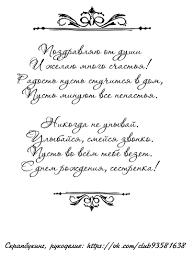 Поздравляю от души
И желаю много счастья!
Радость пусть стучится в дом,
Пусть минуют все ненастья.
Никогда не унывай.
Улыбайся, смейся звонко.
Пусть во всём тебе везет.
С днем рождения, сестренка!
Скрапбукинг, рукоделие: https://ok.com/club93581638